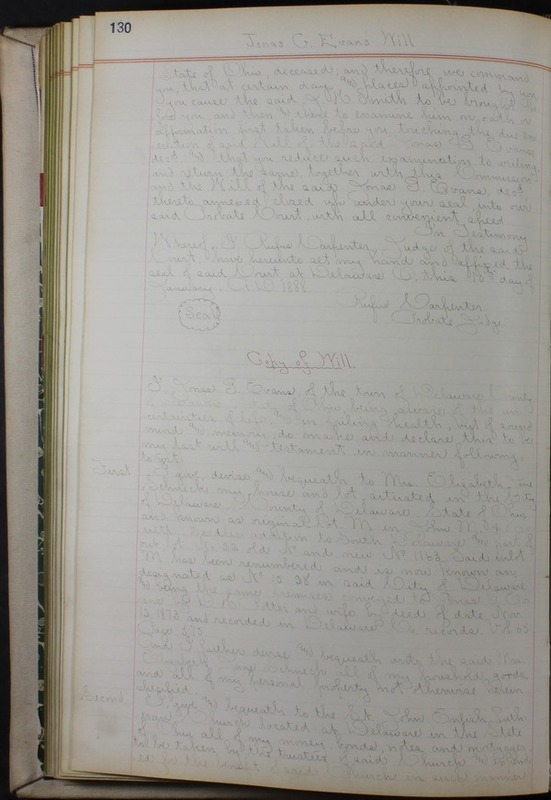 130
Jonas G. Evans Will
State of Ohio, deceased, and therefore we command
you, that at certain day and places appointed by you
you cause the said Smith to be brought
you, and then to examine him on oath or
affirmation first taken before you, touching the due ex
ecution of said Will of the said Jonas G. Evans
decd. & that you reduce such examination to writing
and return the same, together with this Commission
and the Will of the said Jonas G. Evans, decd.
thereto annexed, closed up under your seal, into our
said Probate Court, with all convenient speed
In Testimony
Whereof, I Rufus Carpenter, Judge of the said
Court, have hereunto set my hand and affixed the
seal of said Court, at Delaware O. this day of
January, A.D. 1888
Rufus Carpenter
Seal
Probate Judge
Copy of Will.
I, Jonas G. Evans, of the town of Delaware County
of Ohio, being aware of the un
certainties of life, in failing health, but of sound
mind & memory, do make and declare, this to be
my last will & testament, in manner following,
to wit
First I give, devise & bequeath to Mrs. Elizabeth Jane
Schneck my house and lot, situated in the City
of Delaware County of Delaware State of Ohio
and known as original Lot M in John W.
addition to South Delaware & part of
out lot 52 old No and new No 1163. Said inlot
M has been renumbered and is now known an
designated as No in said City of Delaware
& being the same premises conveyed to Jonas G.
and wife by deed of date Nov
1873 and recorded in Delaware Co. records
Page 575
And I further devise & bequeath unto the said Mrs.
Elizabeth Jane Schneck all of my household goods
and all of my personal property not otherwise herein
specified
Second I give & bequeath to the St. John English Luth
eran Church located at Delaware in the State
of Ohio all of my money, bonds, notes and mortgages
to be taken by the trustees of said Church & expende
d for the benefit said Church in such manner